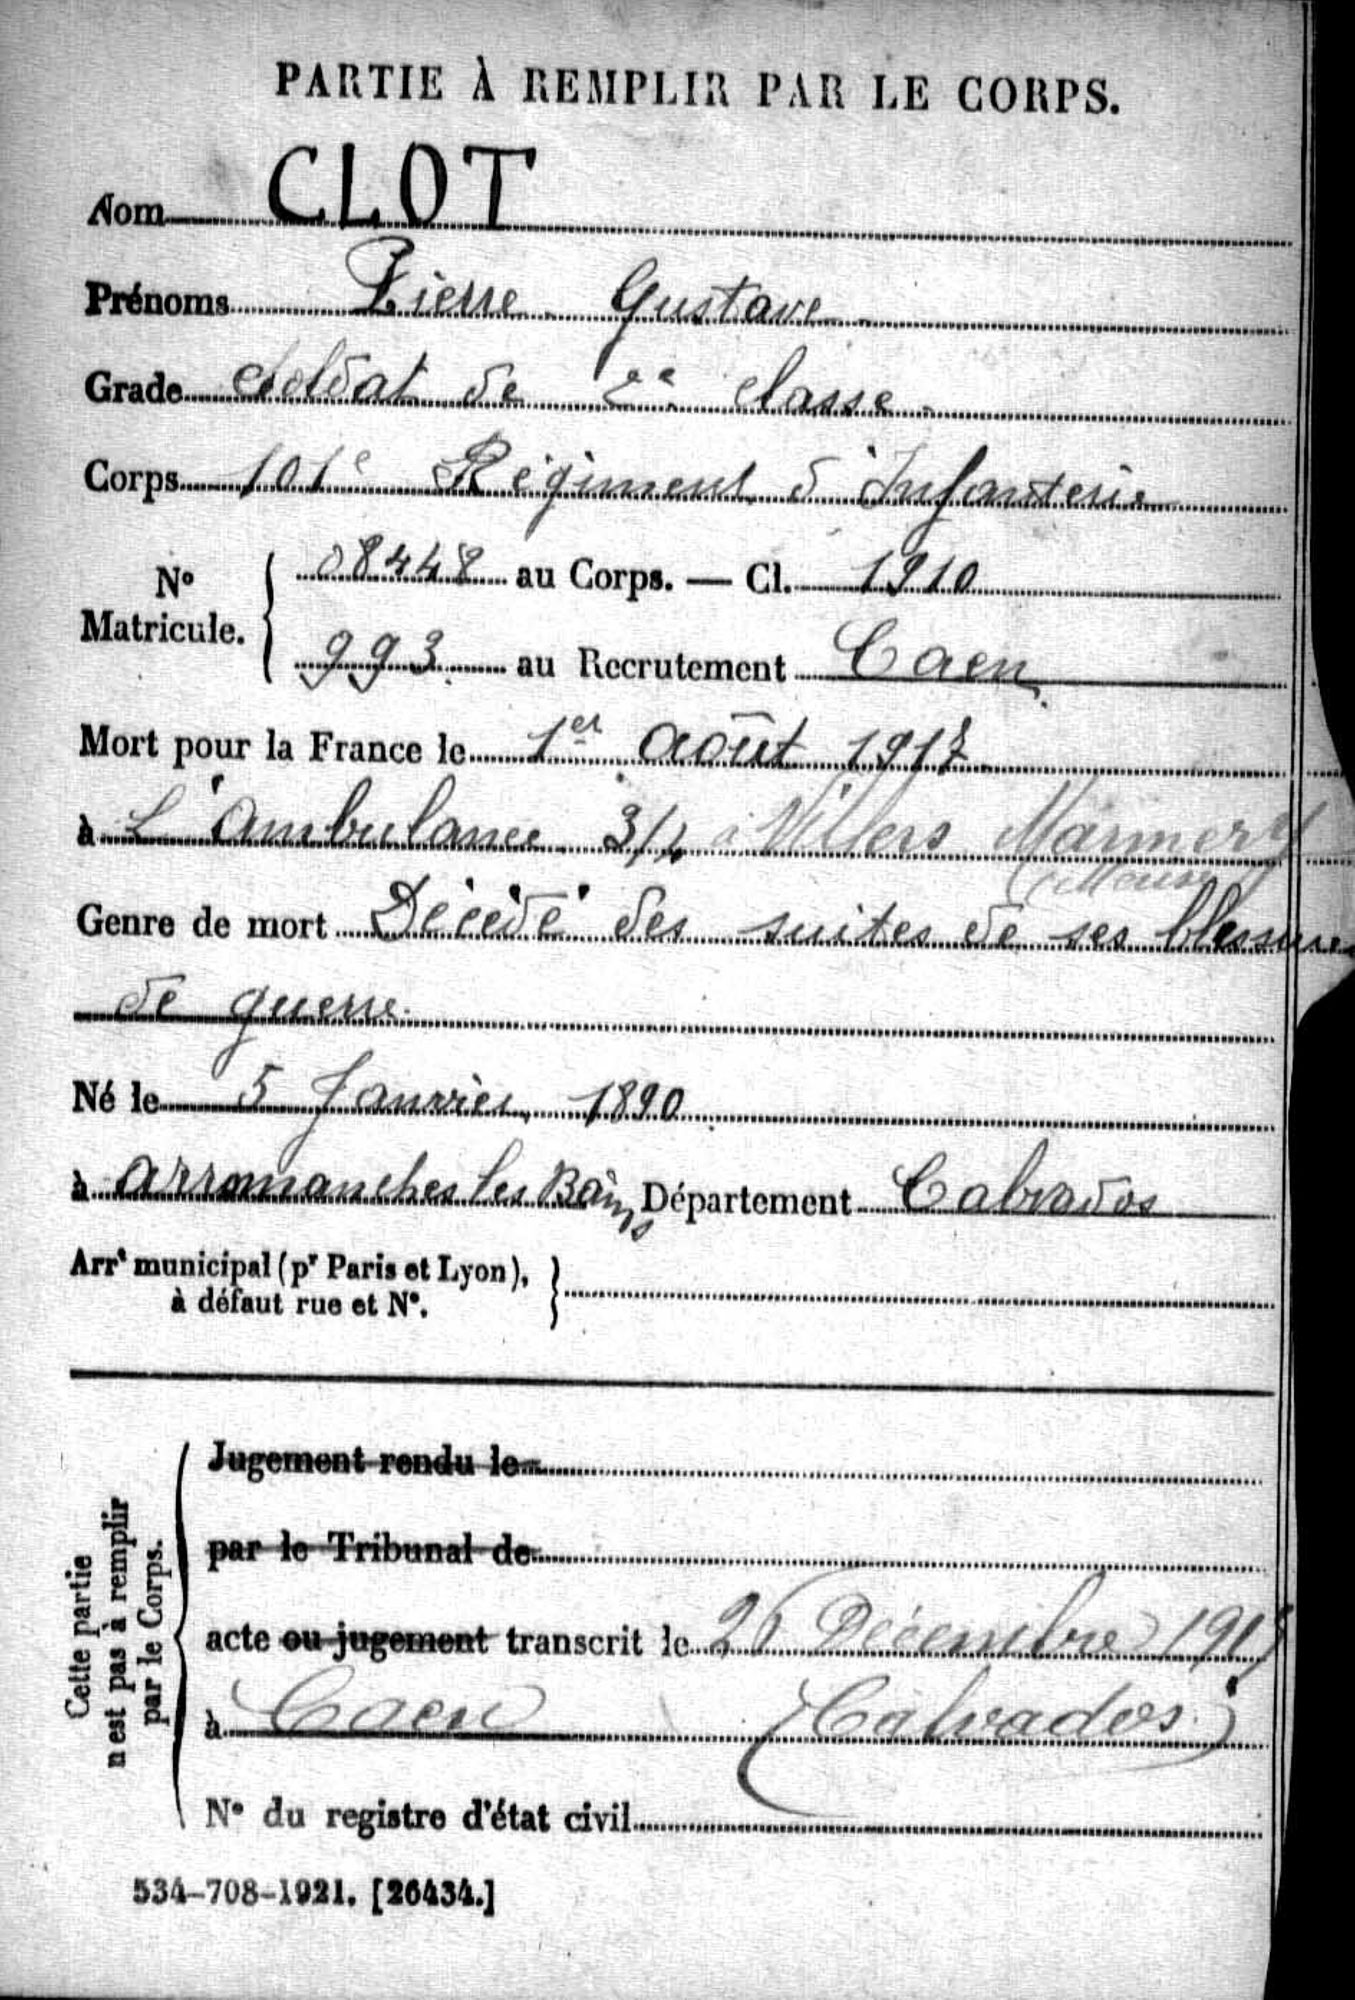 PARTIE À REMPLIR PAR LE CORPS.
Nom CLOT
Prénoms Pierre Gustave
Grade Soldat de 2e classe
Corps 101e Régiment d'Infanterie
N° Matricule. 08448 au Corps. — Cl. 1910
993 au Recrutement Caen
Mort pour la France le 1er août 1917
à L'ambulance 3/4 à Villers Marmery
(Meuse
Genre de mort Décédé des suites de ses blessures
de guerre
Né le 5 Janvier 1890
à Arromanches les Bains Département Calvados
Arrt municipal (pr Paris et Lyon),
à défaut rue et N°.
Cette partie
n'est pas à remplir
par le Corps.
Jugement rendu le
par le Tribunal de
acte ou jugement transcrit le 26 Décembre 1917
à Caen (Calvados)
N° du registre d'état civil
534-708-1921. [26434.]